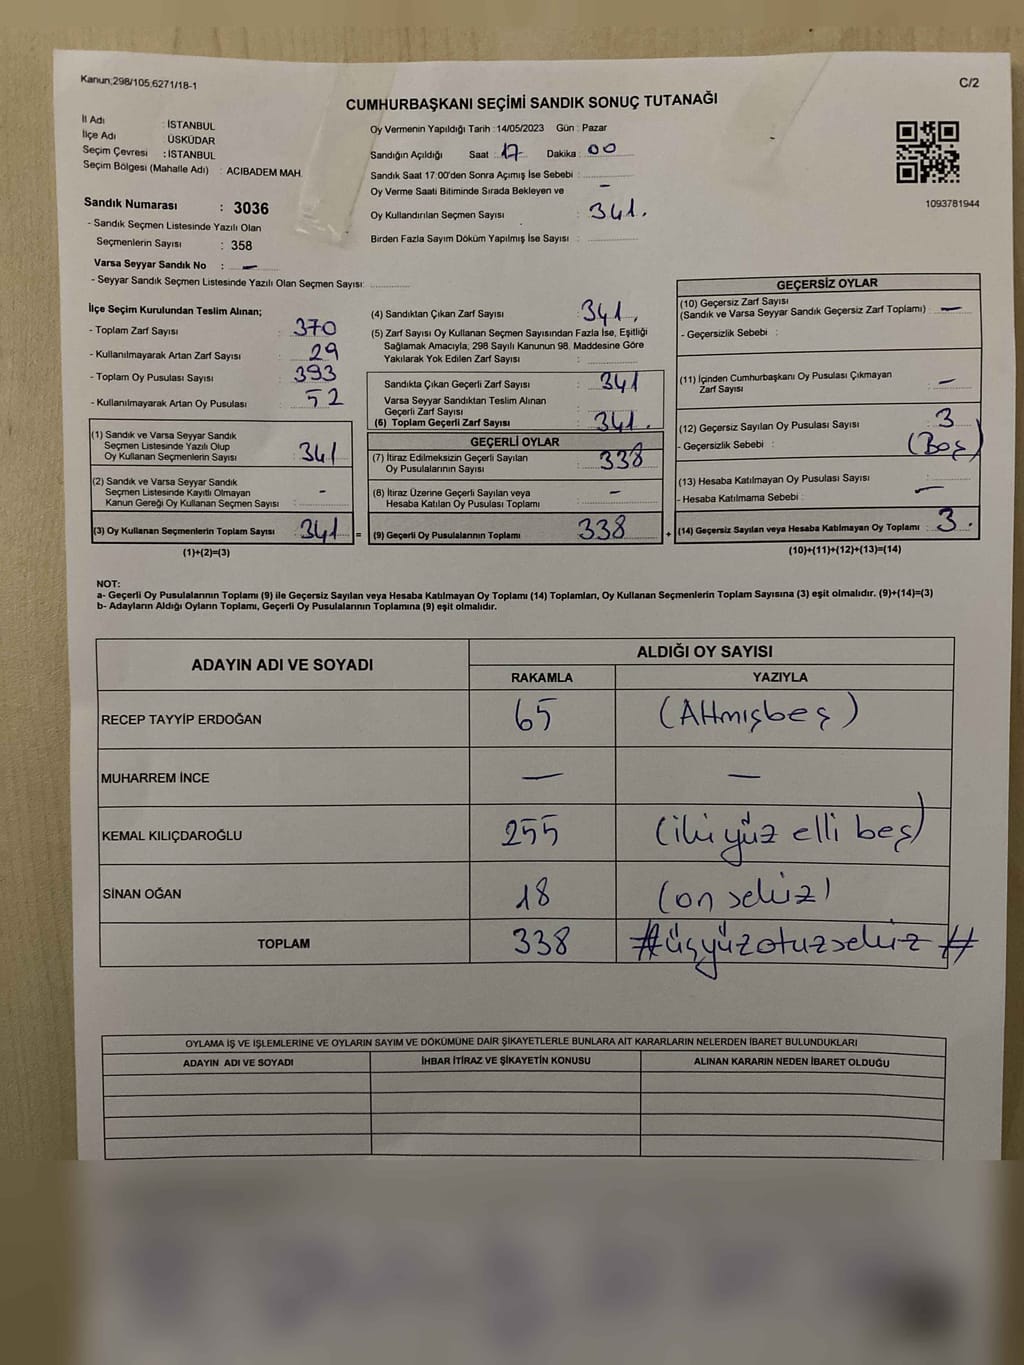 Kanun;298/105,6271/18-1
C/2
CUMHURBAŞKANI SEÇİMİ SANDIK SONUÇ TUTANAĞI
İl Adı : İSTANBUL
İlçe Adı : ÜSKÜDAR
Seçim Çevresi : İSTANBUL
Seçim Bölgesi (Mahalle Adı) : ACIBADEM MAH.
Oy Vermenin Yapıldığı Tarih :14/05/2023 Gün : Pazar
Sandığın Açıldığı Saat : 17 Dakika : 00
Sandık Saat 17:00'den Sonra Açımış İse Sebebi :
Oy Verme Saati Bitiminde Sırada Bekleyen ve —
Oy Kullandırılan Seçmen Sayısı : 341.
Birden Fazla Sayım Döküm Yapılmış İse Sayısı :
1093781944
Sandık Numarası : 3036
- Sandık Seçmen Listesinde Yazılı Olan
Seçmenlerin Sayısı : 358
Varsa Seyyar Sandık No : —
- Seyyar Sandık Seçmen Listesinde Yazılı Olan Seçmen Sayısı:
İlçe Seçim Kurulundan Teslim Alınan;
- Toplam Zarf Sayısı : 370
- Kullanılmayarak Artan Zarf Sayısı : 29
- Toplam Oy Pusulası Sayısı : 393
- Kullanılmayarak Artan Oy Pusulası : 52
(1) Sandık ve Varsa Seyyar Sandık
Seçmen Listesinde Yazılı Olup
Oy Kullanan Seçmenlerin Sayısı : 341
(2) Sandık ve Varsa Seyyar Sandık
Seçmen Listesinde Kayıtlı Olmayan
Kanun Gereği Oy Kullanan Seçmen Sayısı : -
(3) Oy Kullanan Seçmenlerin Toplam Sayısı : 341 =
(1)+(2)=(3)
(4) Sandıktan Çıkan Zarf Sayısı : 341.
(5) Zarf Sayısı Oy Kullanan Seçmen Sayısından Fazla İse, Eşitliği
Sağlamak Amacıyla; 298 Sayılı Kanunun 98. Maddesine Göre
Yakılarak Yok Edilen Zarf Sayısı :
Sandıkta Çıkan Geçerli Zarf Sayısı : 341
Varsa Seyyar Sandıktan Teslim Alınan
Geçerli Zarf Sayısı :
(6) Toplam Geçerli Zarf Sayısı : 341.
GEÇERLİ OYLAR
(7) İtiraz Edilmeksizin Geçerli Sayılan
Oy Pusulalarının Sayısı : 338
(8) İtiraz Üzerine Geçerli Sayılan veya
Hesaba Katılan Oy Pusulası Toplamı : —
(9) Geçerli Oy Pusulalarının Toplamı : 338 +
GEÇERSİZ OYLAR
(10) Geçersiz Zarf Sayısı
(Sandık ve Varsa Seyyar Sandık Geçersiz Zarf Toplamı) : —
- Geçersizlik Sebebi :
(11) İçinden Cumhurbaşkanı Oy Pusulası Çıkmayan
Zarf Sayısı : —
(12) Geçersiz Sayılan Oy Pusulası Sayısı : 3
- Geçersizlik Sebebi : (Boş)
(13) Hesaba Katılmayan Oy Pusulası Sayısı : —
- Hesaba Katılmama Sebebi :
(14) Geçersiz Sayılan veya Hesaba Katılmayan Oy Toplamı : 3.
(10)+(11)+(12)+(13)=(14)
NOT:
a- Geçerli Oy Pusulalarının Toplamı (9) ile Geçersiz Sayılan veya Hesaba Katılmayan Oy Toplamı (14) Toplamları, Oy Kullanan Seçmenlerin Toplam Sayısına (3) eşit olmalıdır. (9)+(14)=(3)
b- Adayların Aldığı Oyların Toplamı, Geçerli Oy Pusulalarının Toplamına (9) eşit olmalıdır.
ADAYIN ADI VE SOYADI
ALDIĞI OY SAYISI
RAKAMLA YAZIYLA
RECEP TAYYİP ERDOĞAN 65 (Altmışbeş)
MUHARREM İNCE — —
KEMAL KILIÇDAROĞLU 255 (iki yüz elli beş)
SİNAN OĞAN 18 (on sekiz)
TOPLAM 338 #üçyüzotuzsekiz#
OYLAMA İŞ VE İŞLEMLERİNE VE OYLARIN SAYIM VE DÖKÜMÜNE DAİR ŞİKAYETLERLE BUNLARA AİT KARARLARIN NELERDEN İBARET BULUNDUKLARI
ADAYIN ADI VE SOYADI İHBAR İTİRAZ VE ŞİKAYETİN KONUSU ALINAN KARARIN NEDEN İBARET OLDUĞU